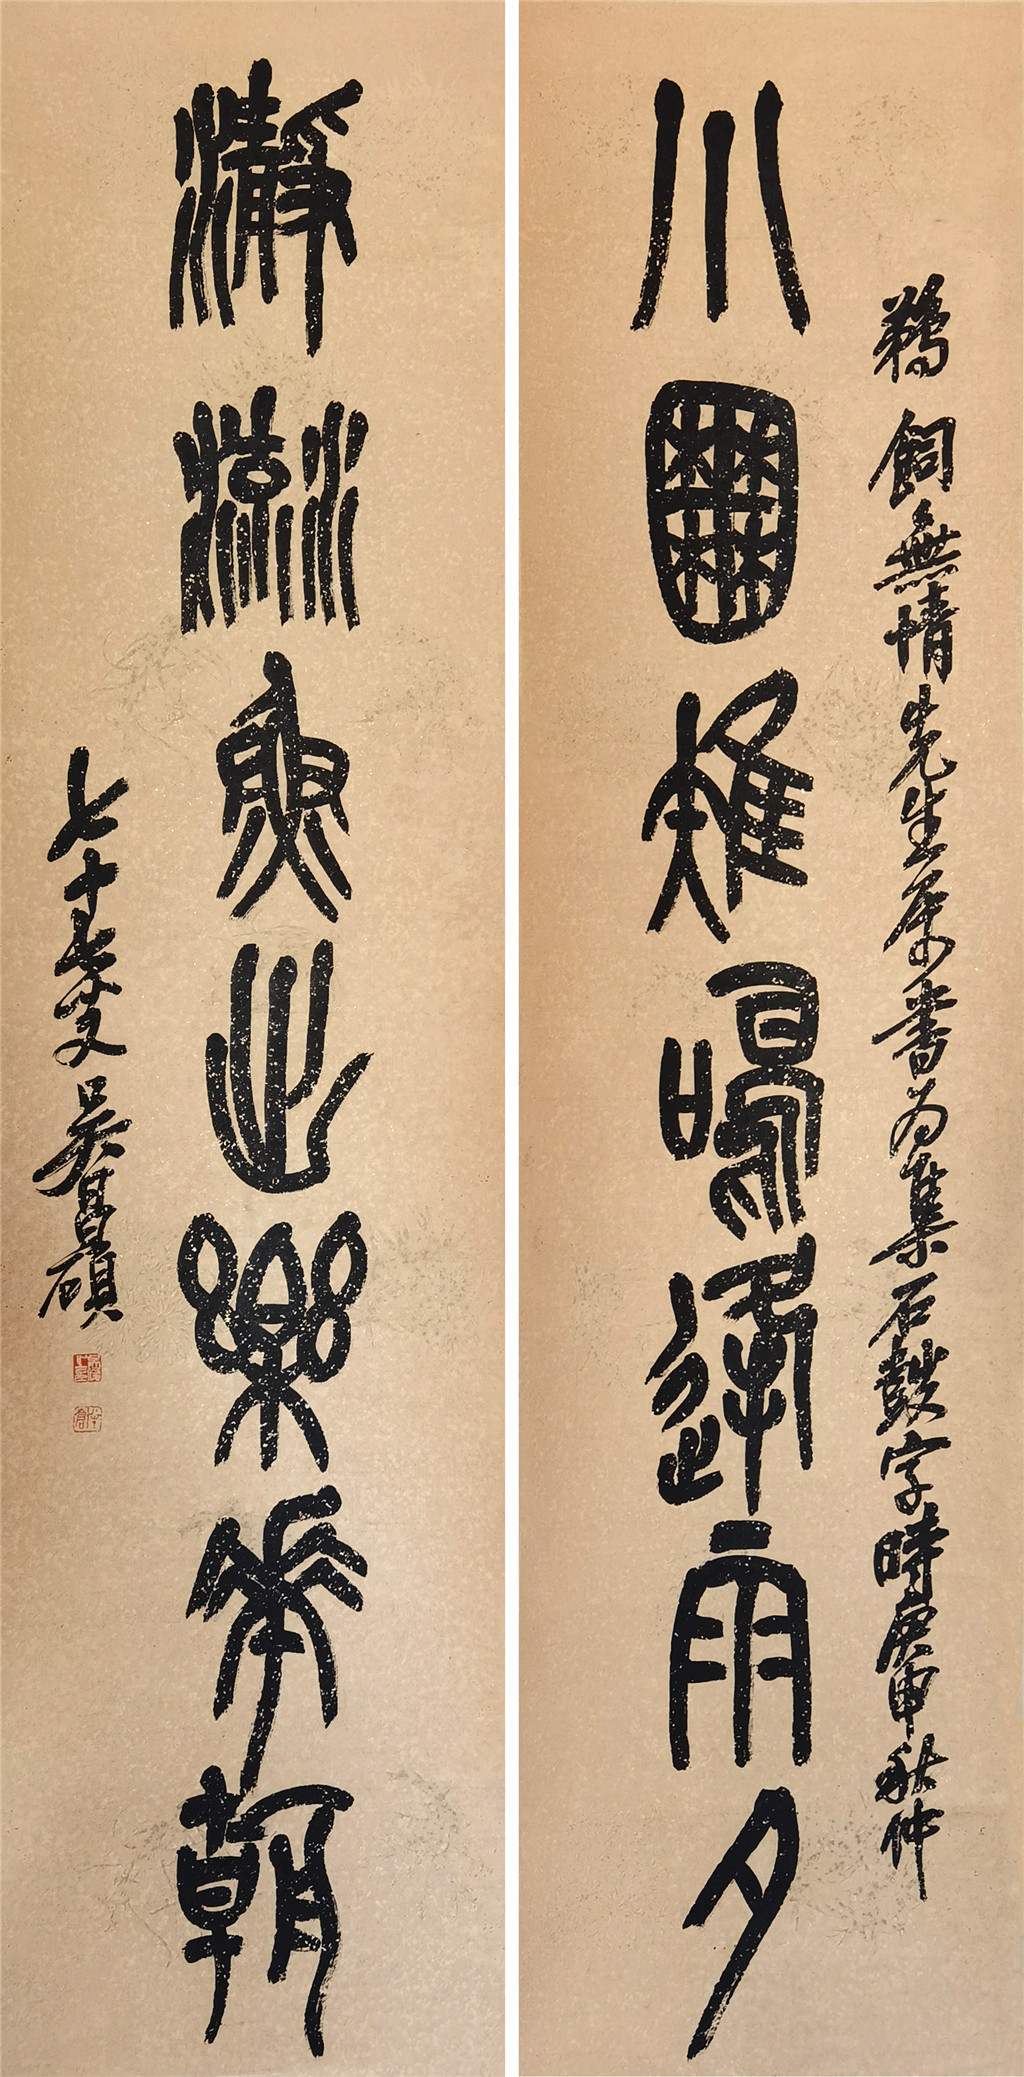 鵜飼無情先生属書為集石鼓字時庚申秋仲
小囿雉鳴逢雨夕
瀞流魚出樂華朝
七十七叟吳昌碩